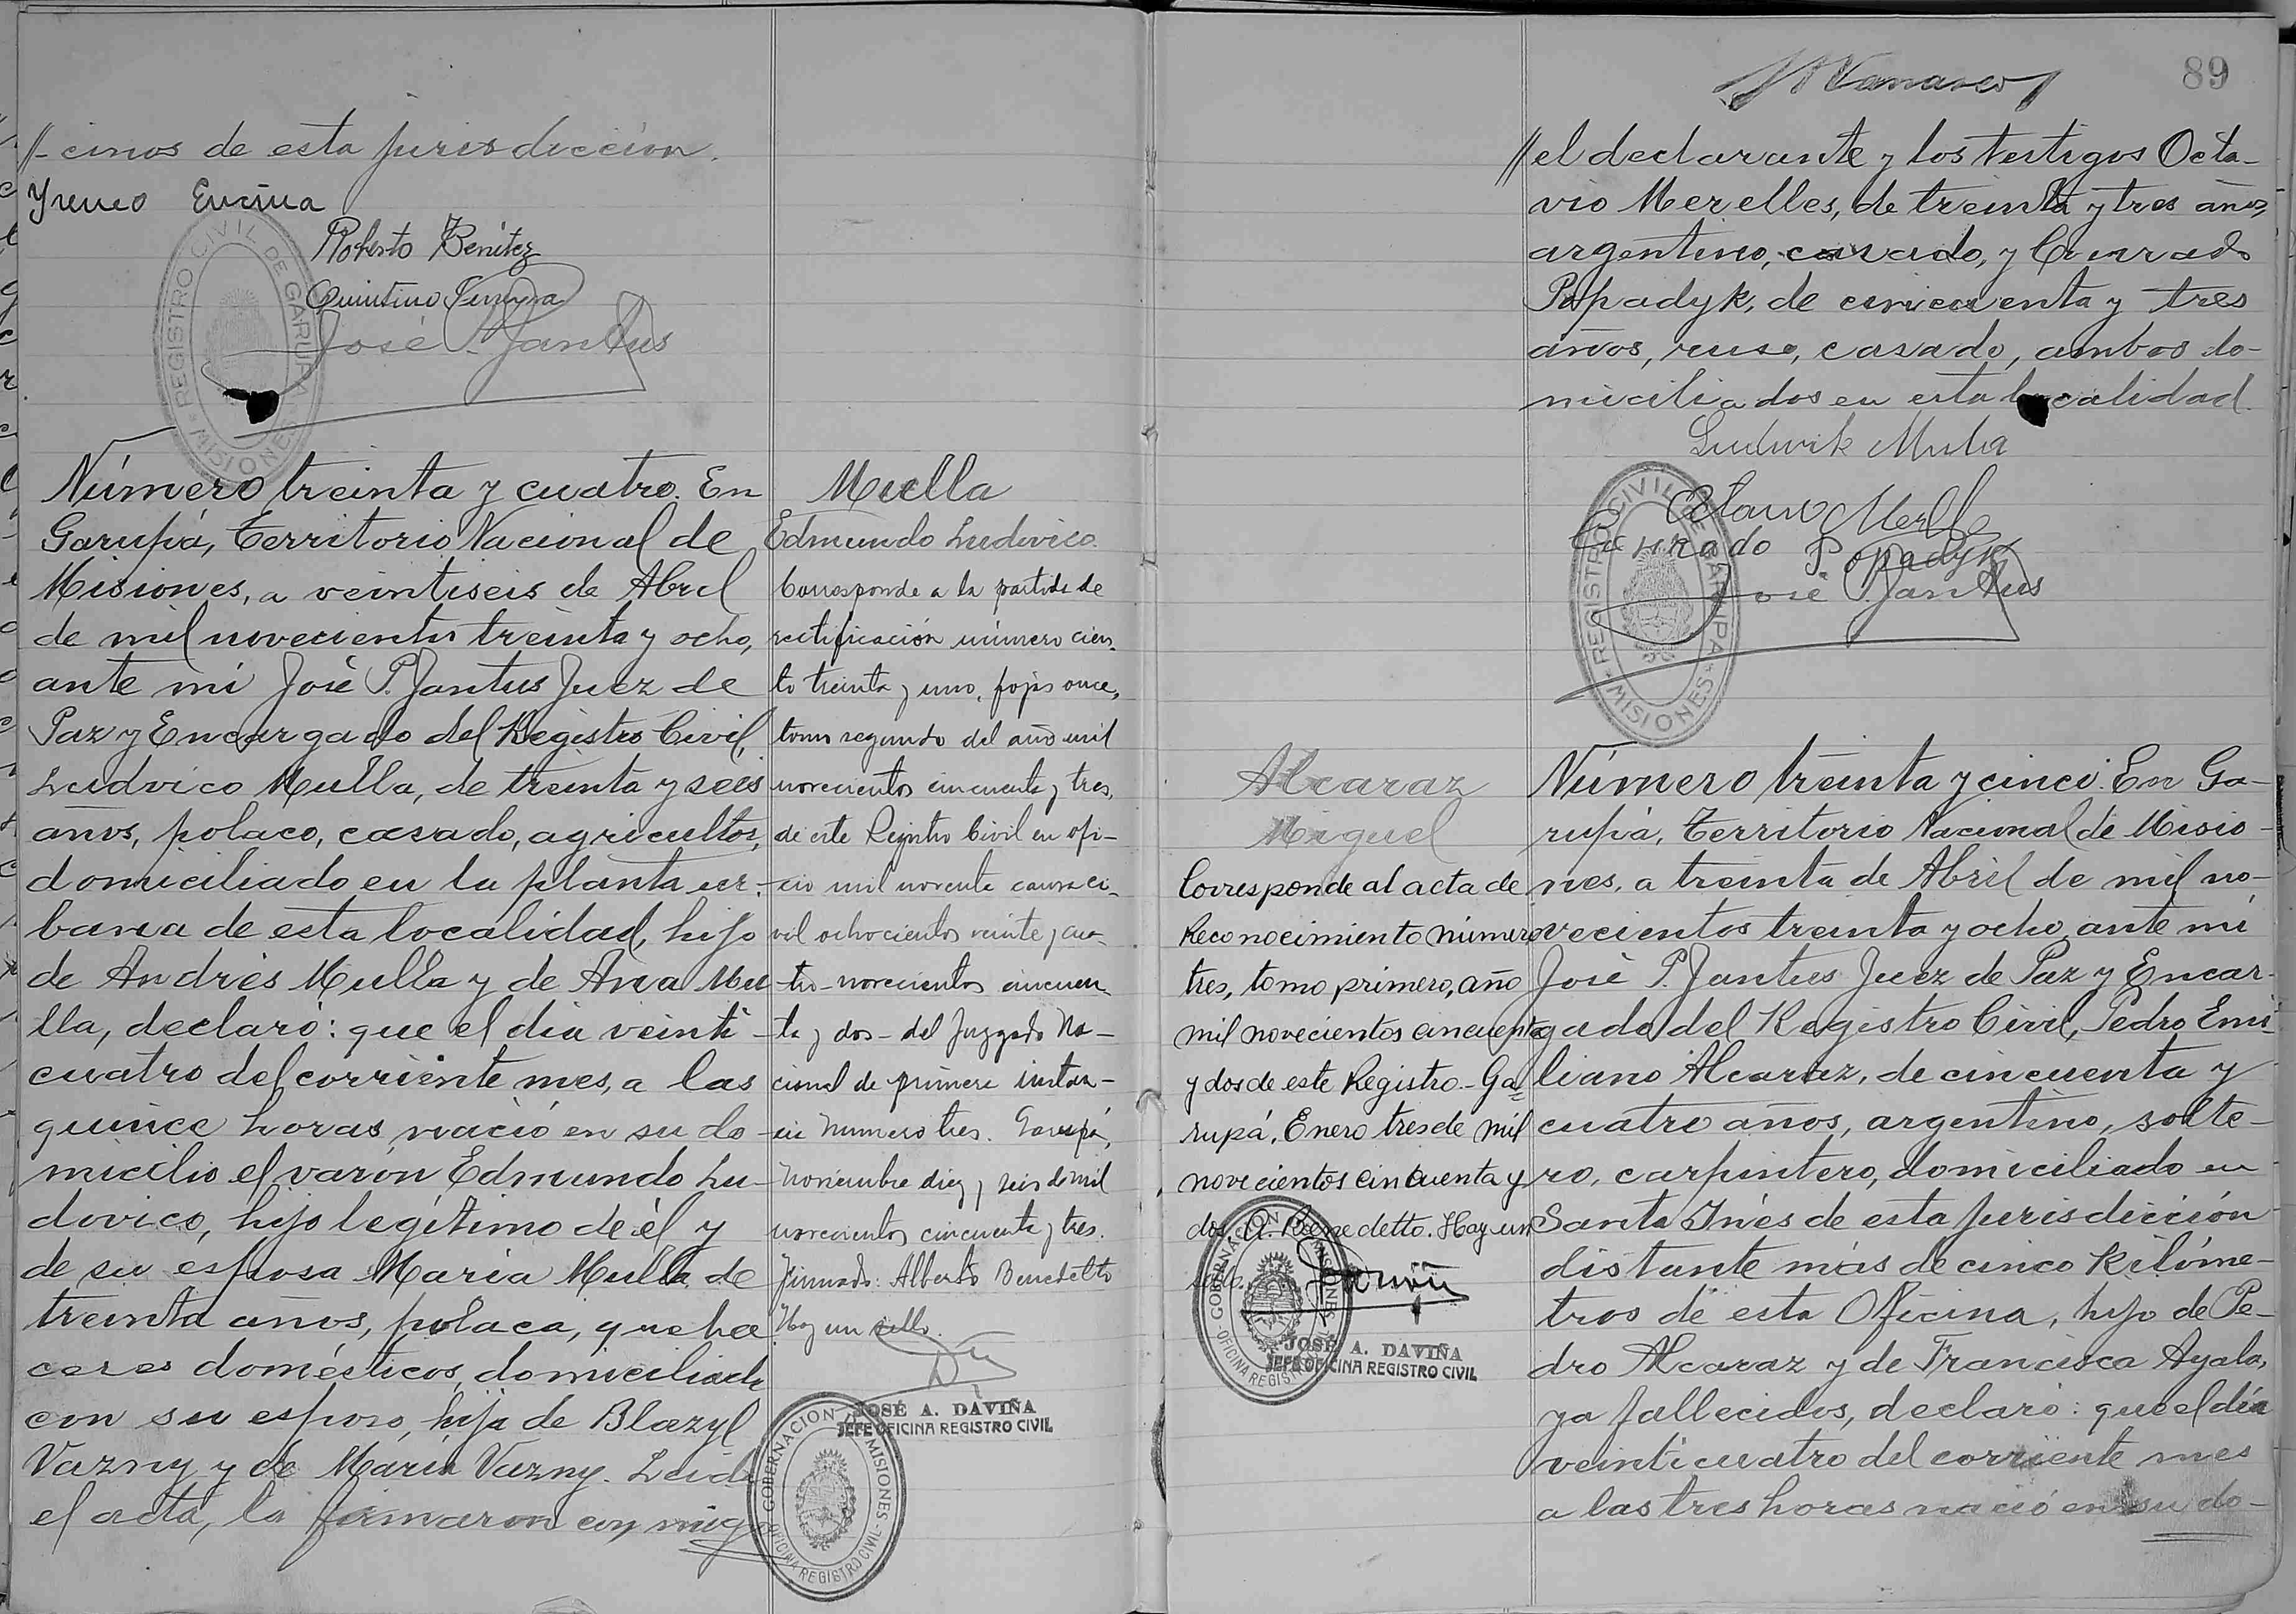 //-cinos de esta jurisdicción.
Yreneo Encina
Roberto Benitez
Quintino
José P. Jantus
REGISTRO CIVIL DE GARUPA
MISIONES
Número treinta y cuatro. En
Garupá, Territorio Nacional de
Misiones, a veintiseis de Abril
de mil novecientos treinta y ocho,
ante mi José P. Jantus Juez de
Paz y Encargado del Registro Civil,
Ludvico Mulla, de treinta y seis
años, polaco, casado, agricultor,
domiciliado en la planta ur-
bana de esta localidad, hijo
de Andrés Mulla y de Ana Mu-
lla, declaró: que el día veinti-
cuatro del corriente mes, a las
quince horas nació en su do-
micilio el varón Edmundo Lu-
dovico, hijo legítimo de él y
de su esposa María Mulla, de
treinta años, polaca, queha-
ceres domésticos, domiciliada
con su esposo, hija de Blazyl
Vazny y de María Vazny. Leida
el acta, la firmaron conmigo
Mulla
Edmundo Ludovico.
Corresponde a la partida de
rectificación número cien-
to treinta y uno, fojas once,
tomo segundo del año mil
novecientos cincuenta y tres,
de este Registro Civil en ofi-
cio mil noventa causa ci-
vil ochocientos veinte y cua-
tro-novecientos cincuen-
ta y dos- del Juzgado Na-
cional de primera instan-
cia Número tres. Garupá,
Noviembre diez y seis de mil
novecientos cincuenta y tres.
Firmado: Alberto Benedetto
Hay un sello.
JOSÉ A. DAVIÑA
JEFE OFICINA REGISTRO CIVIL
GOBERNACION MISIONES
OFICINA REGISTRO CIVIL
89
//el declarante y los testigos Octa-
vio Merelles, de treinta y tres años,
argentino, casado, y Conrado
Popadyk, de cincuenta y tres
años, ruso, casado, ambos do-
miciliados en esta localidad.
Ludwik Mula
Octavio Merelles
Conrado Popadyk
José P. Jantus
REGISTRO CIVIL DE GARUPA
MISIONES
Alcaraz
Miguel
Corresponde al acta de
Reconocimiento número
tres, tomo primero, año
mil novecientos cincuenta
y dos de este Registro.- Ga-
rupá, Enero tres de mil
novecientos cincuenta y
dos. A. Benedetto. Hay un
sello.
JOSÉ A. DAVIÑA
JEFE OFICINA REGISTRO CIVIL
GOBERNACION MISIONES
OFICINA REGISTRO
Número treinta y cinco. En Ga-
rupá, Territorio Nacional de Misio-
nes, a treinta de Abril de mil no-
vecientos treinta y ocho, ante mi
José P. Jantus Juez de Paz y Encar-
gado del Registro Civil, Pedro Emi-
liano Alcaraz, de cincuenta y
cuatro años, argentino, solte-
ro, carpintero, domiciliado en
Santa Inés de esta jurisdicción
distante más de cinco kilóme-
tros de esta Oficina, hijo de Pe-
dro Alcaraz y de Francisca Ayala,
ya fallecidos, declaró: que el día
veinticuatro del corriente mes
a las tres horas nació en su do-